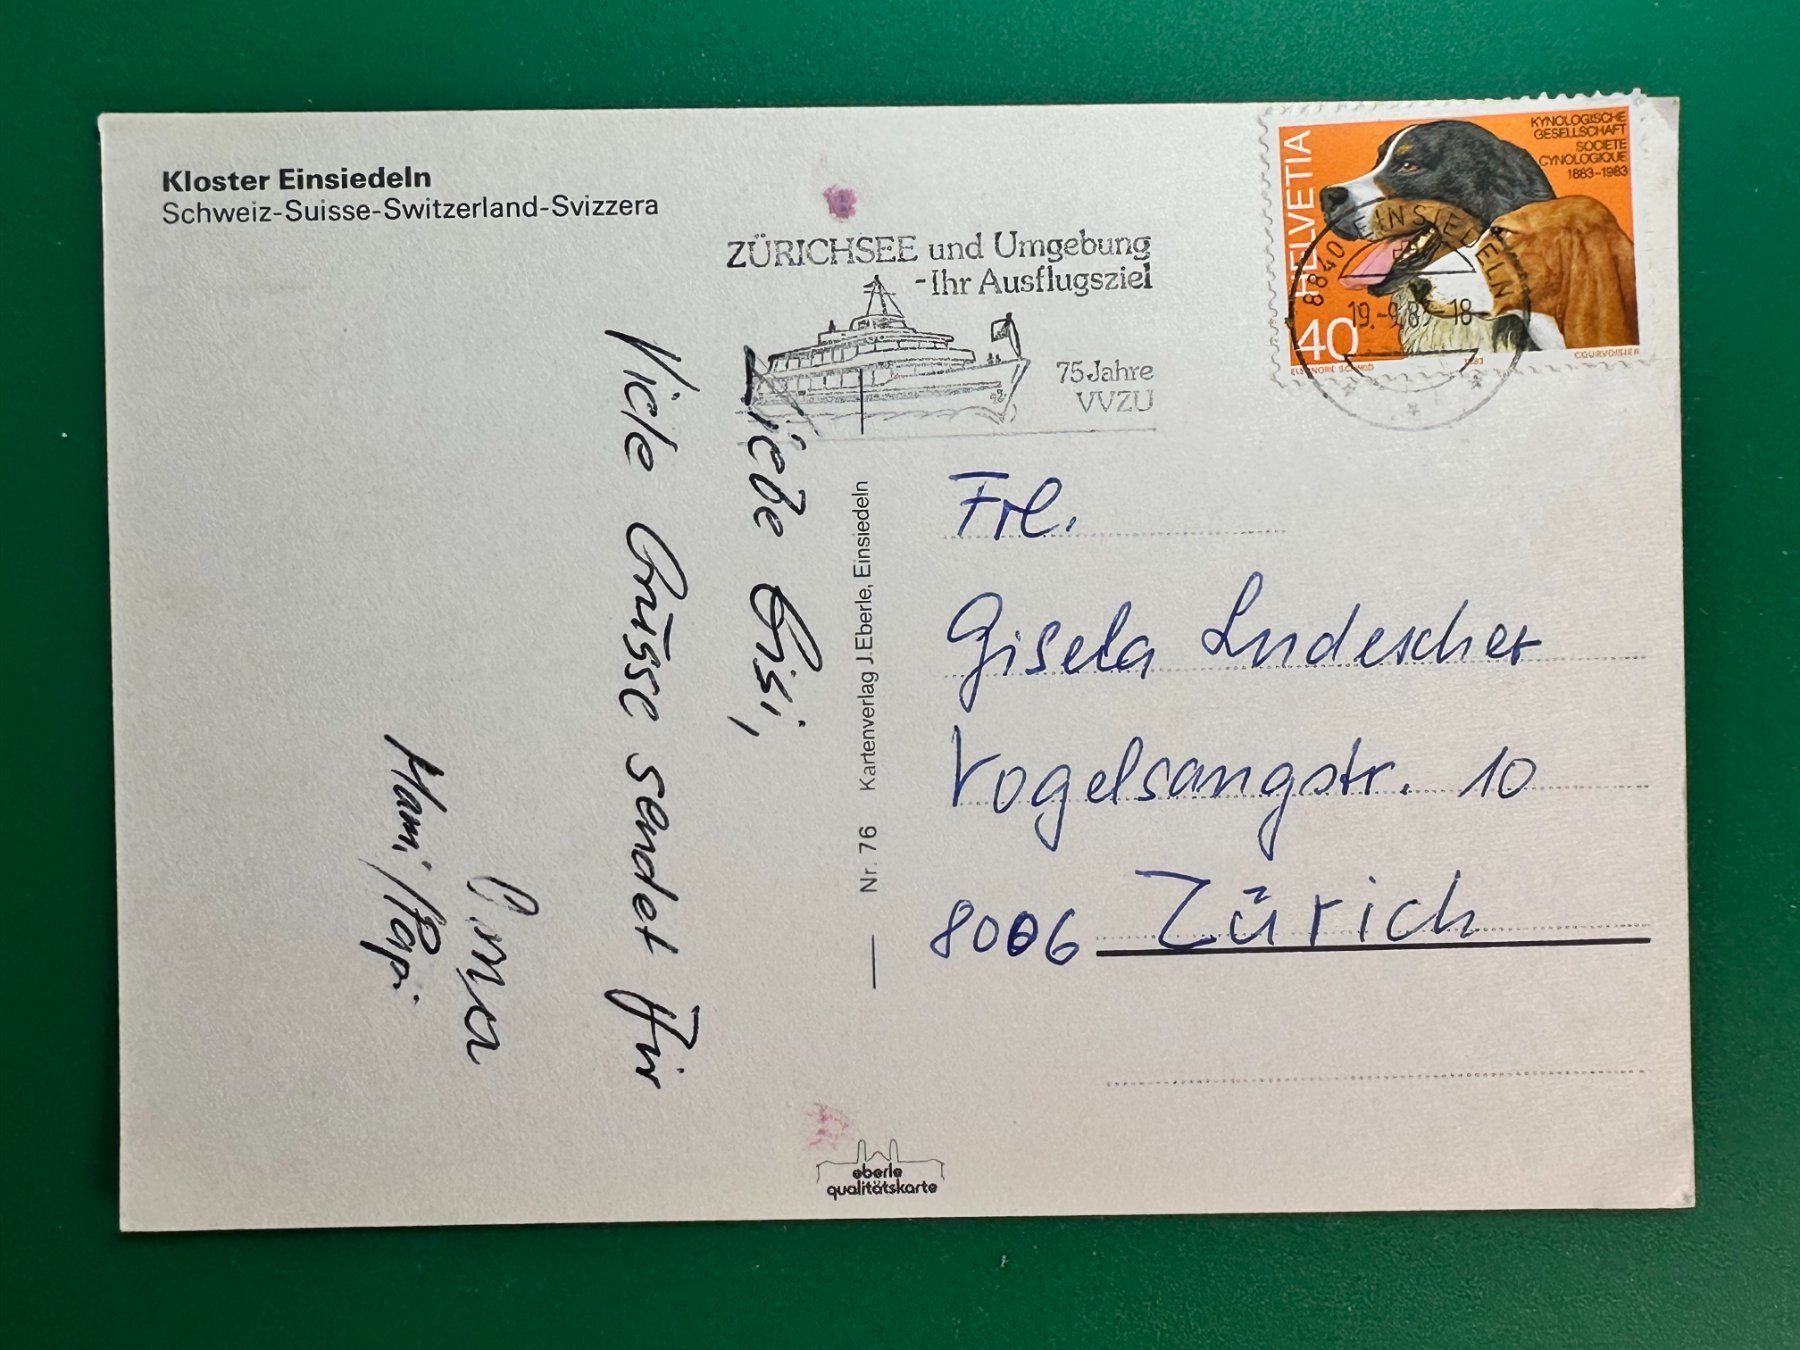 Kloster Einsiedeln
Schweiz-Suisse-Switzerland-Svizzera
ZÜRICHSEE und Umgebung
-Ihr Ausflugsziel
75 Jahre
VVZU
HELVETIA
KYNOLOGISCHE
GESELLSCHAFT
SOCIETE
CYNOLOGIQUE
1883-1983
40
COURVOISIER
1983
8840 EINSIEDELN
19.-9.83-18
Liebe Gisi,
Viele Grüsse sendet Dir
Mami/Papi
Nr. 76 Kartenverlag J. Eberle, Einsiedeln
Frl.
Gisela Ludescher
Vogelsangstr. 10
8006 Zürich
eberle
qualitätskarte